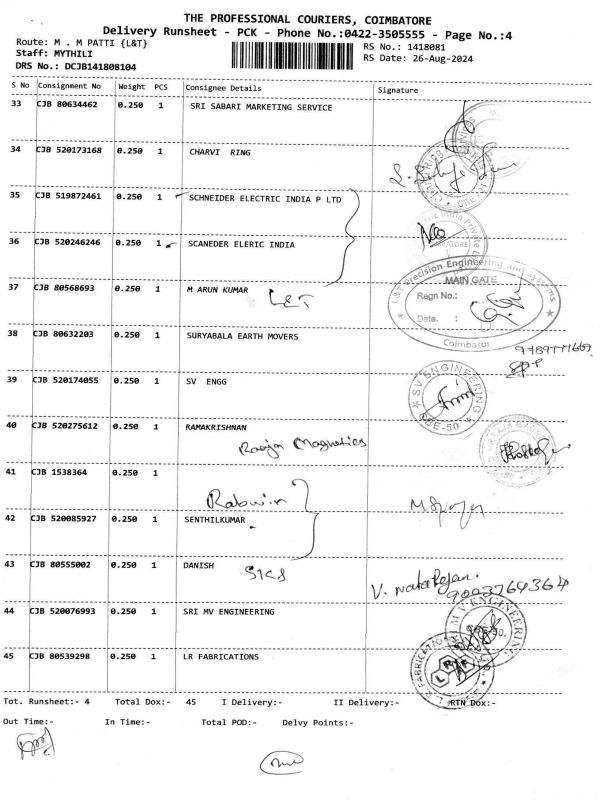 THE PROFESSIONAL COURIERS, COIMBATORE
Delivery Runsheet - PCK - Phone No.:0422-3505555 - Page No.:4
Route: M . M PATTI {L&T}
RS No.: 1418081
Staff: MYTHILI
RS Date: 26-Aug-2024
DRS No.: DCJB141808104
S No Consignment No Weight PCS Consignee Details Signature
33 CJB 80634462 0.250 1 SRI SABARI MARKETING SERVICE
34 CJB 520173168 0.250 1 CHARVI RING
35 CJB 519872461 0.250 1 SCHNEIDER ELECTRIC INDIA P LTD
36 CJB 520246246 0.250 1 SCANEDER ELERIC INDIA
L&T Precision Engineering and Systems
MAIN GATE
37 CJB 80568693 0.250 1 M ARUN KUMAR L&T
Regn No.:
Date. :
Coimbator
38 CJB 80632203 0.250 1 SURYABALA EARTH MOVERS
39 CJB 520174055 0.250 1 SV ENGG
SV ENGINEERING
CBE-50
40 CJB 520275612 0.250 1 RAMAKRISHNAN
Rooja Magnetics
41 CJB 1538364 0.250 1
Rabwin
42 CJB 520085927 0.250 1 SENTHILKUMAR
43 CJB 80555002 0.250 1 DANISH
SIKS
V. Natarajan.
9003764364
44 CJB 520076993 0.250 1 SRI MV ENGINEERING
M V ENGINEERING
45 CJB 80539298 0.250 1 LR FABRICATIONS
L.R. FABRICATION
L R F
Tot. Runsheet:- 4 Total Dox:- 45 I Delivery:- II Delivery:- RTN Dox:-
Out Time:- In Time:- Total POD:- Delvy Points:-